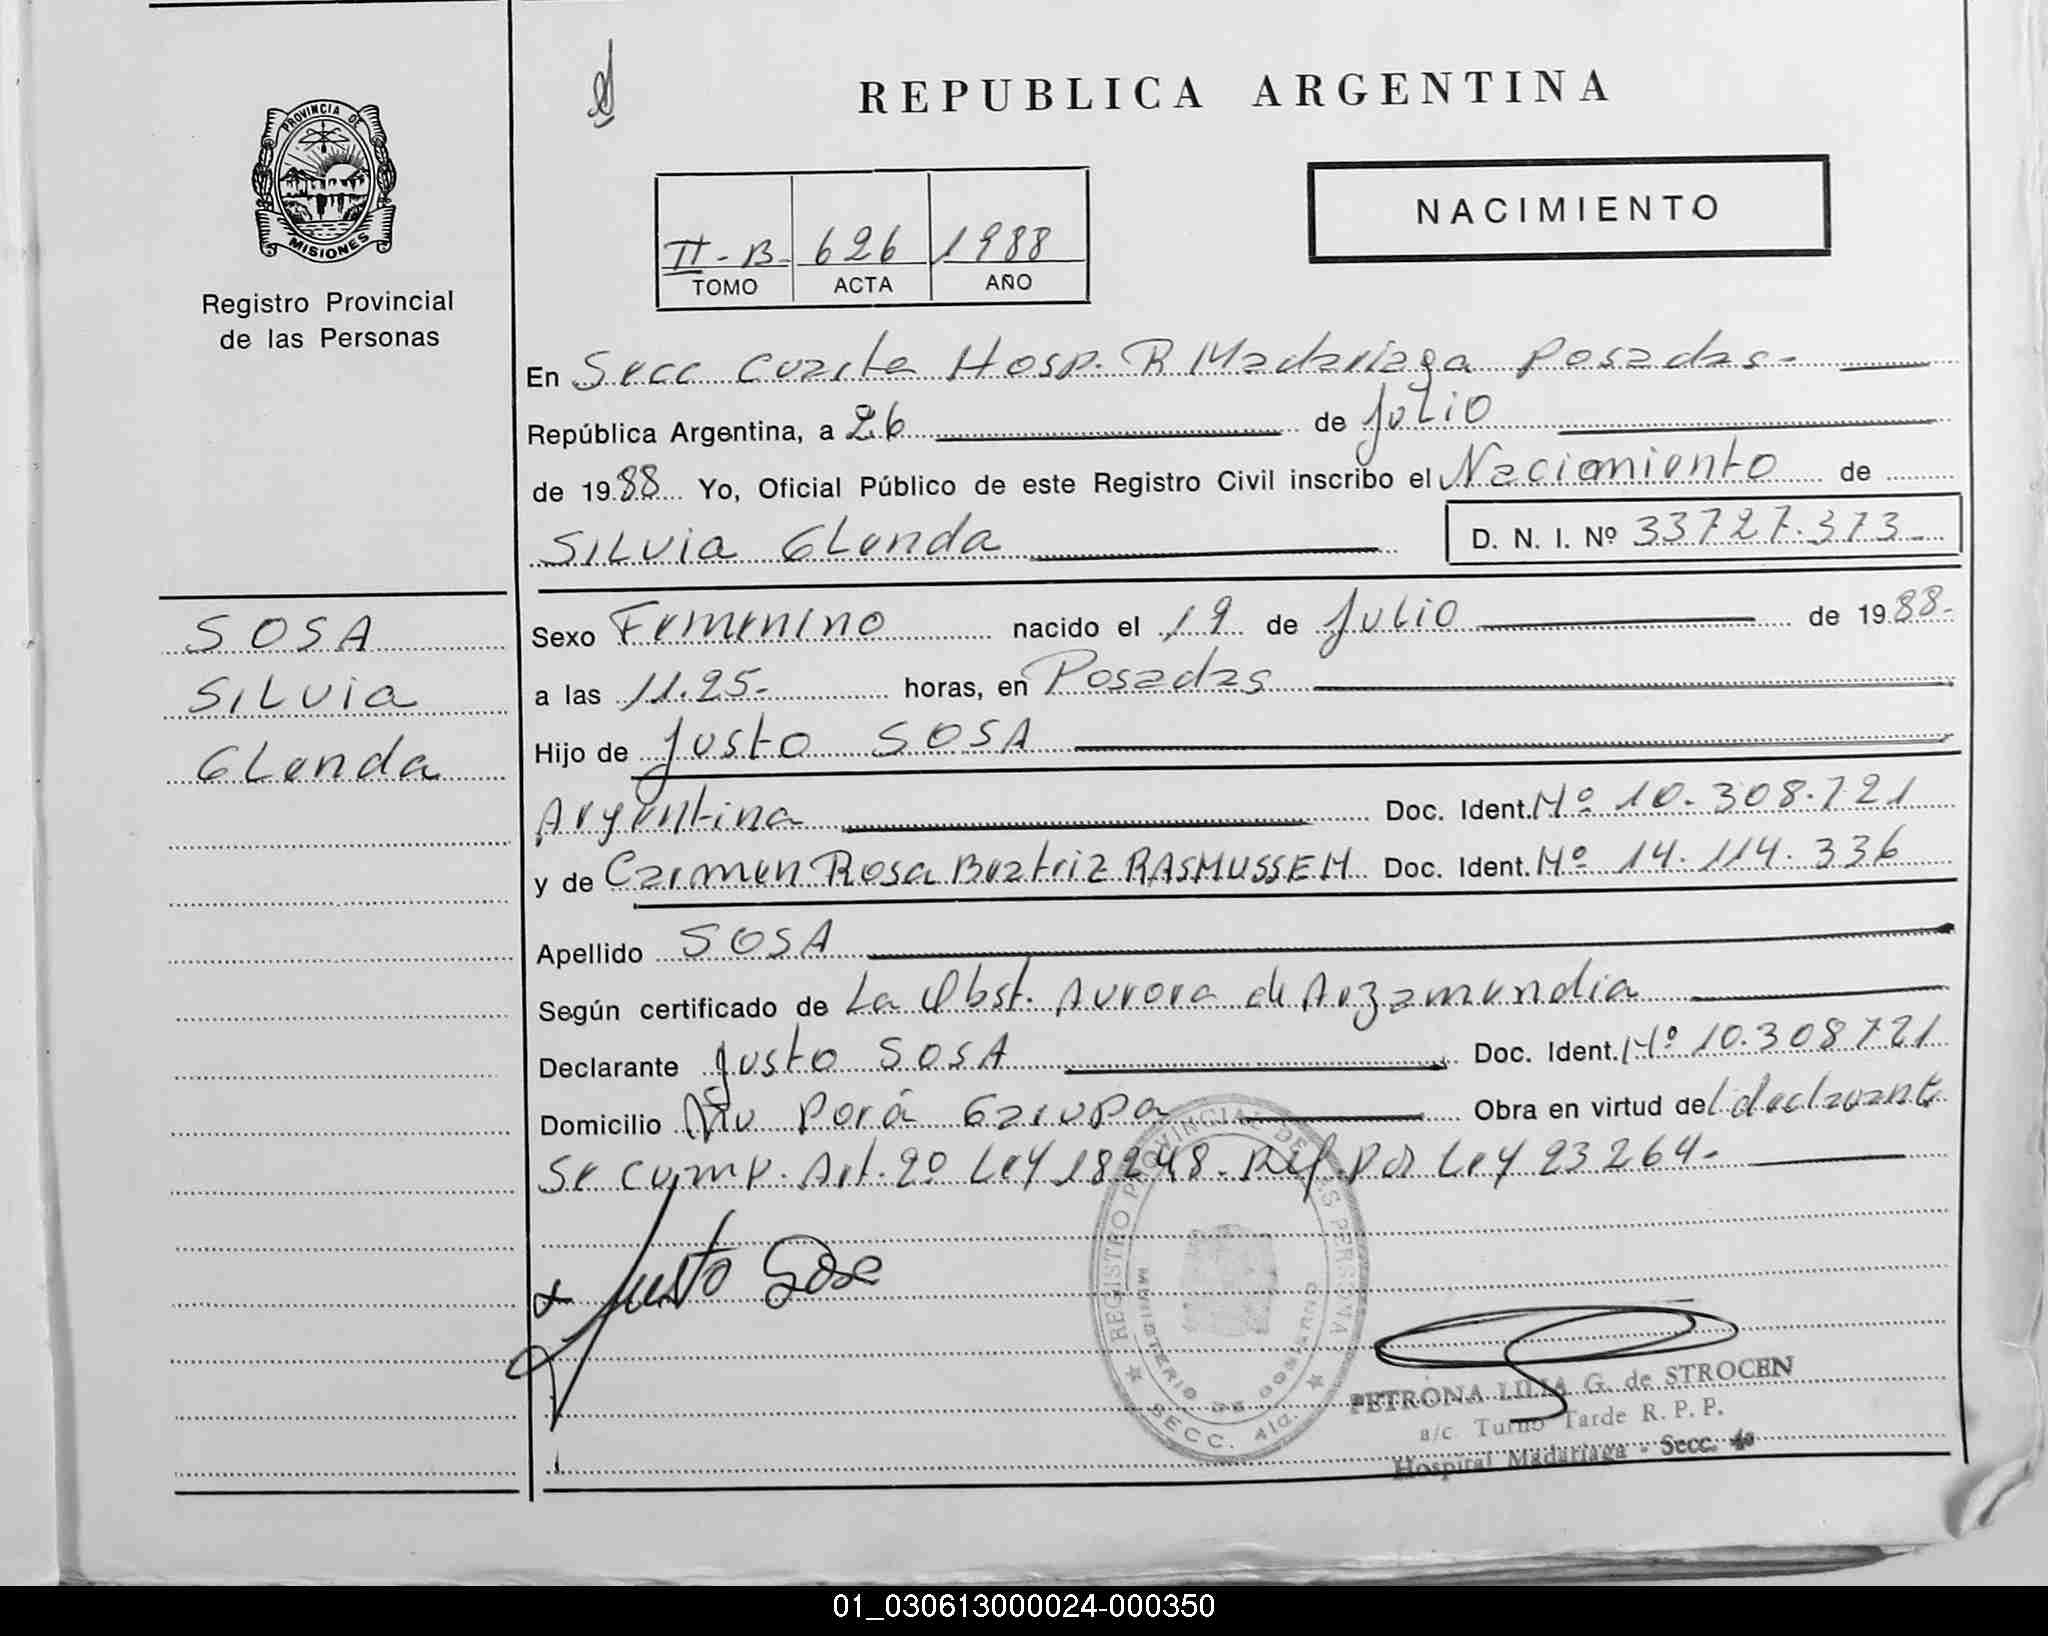 REPUBLICA ARGENTINA
PROVINCIA DE
MISIONES
Registro Provincial
de las Personas
NACIMIENTO
II-B- 626 1988
TOMO ACTA AÑO
En Secc Cuarta Hosp. R Madariaga Posadas-
República Argentina, a 26 de Julio
de 1988 Yo, Oficial Público de este Registro Civil inscribo el Nacimiento de
SILVia GLenda D. N. I. Nº 33727.373-
SOSA
SILVia
GLenda
Sexo Femenino nacido el 19 de Julio de 1988-
a las 11.25- horas, en Posadas
Hijo de Justo SOSA
Argentina Doc. Ident. Nº 10.308.721
y de Carmen Rosa Beatriz RASMUSSEN Doc. Ident. Nº 14.114.336
Apellido SOSA
Según certificado de La Obst. Aurora de Arzamendia
Declarante Justo SOSA Doc. Ident. Nº 10.308721
Domicilio Porá Garupa Obra en virtud del declarante
Se cump. Art. 2º Ley 18248. Ref. Por Ley 23264-
Justo Sosa
REGISTRO PROVINCIAL DE LAS PERSONAS
MINISTERIO DE GOBIERNO
SECC. 4ta.
PETRONA LIDIA G. de STROCEN
a/c Turno Tarde R. P. P.
Hospital Madariaga - Secc. 4a
01_030613000024-000350